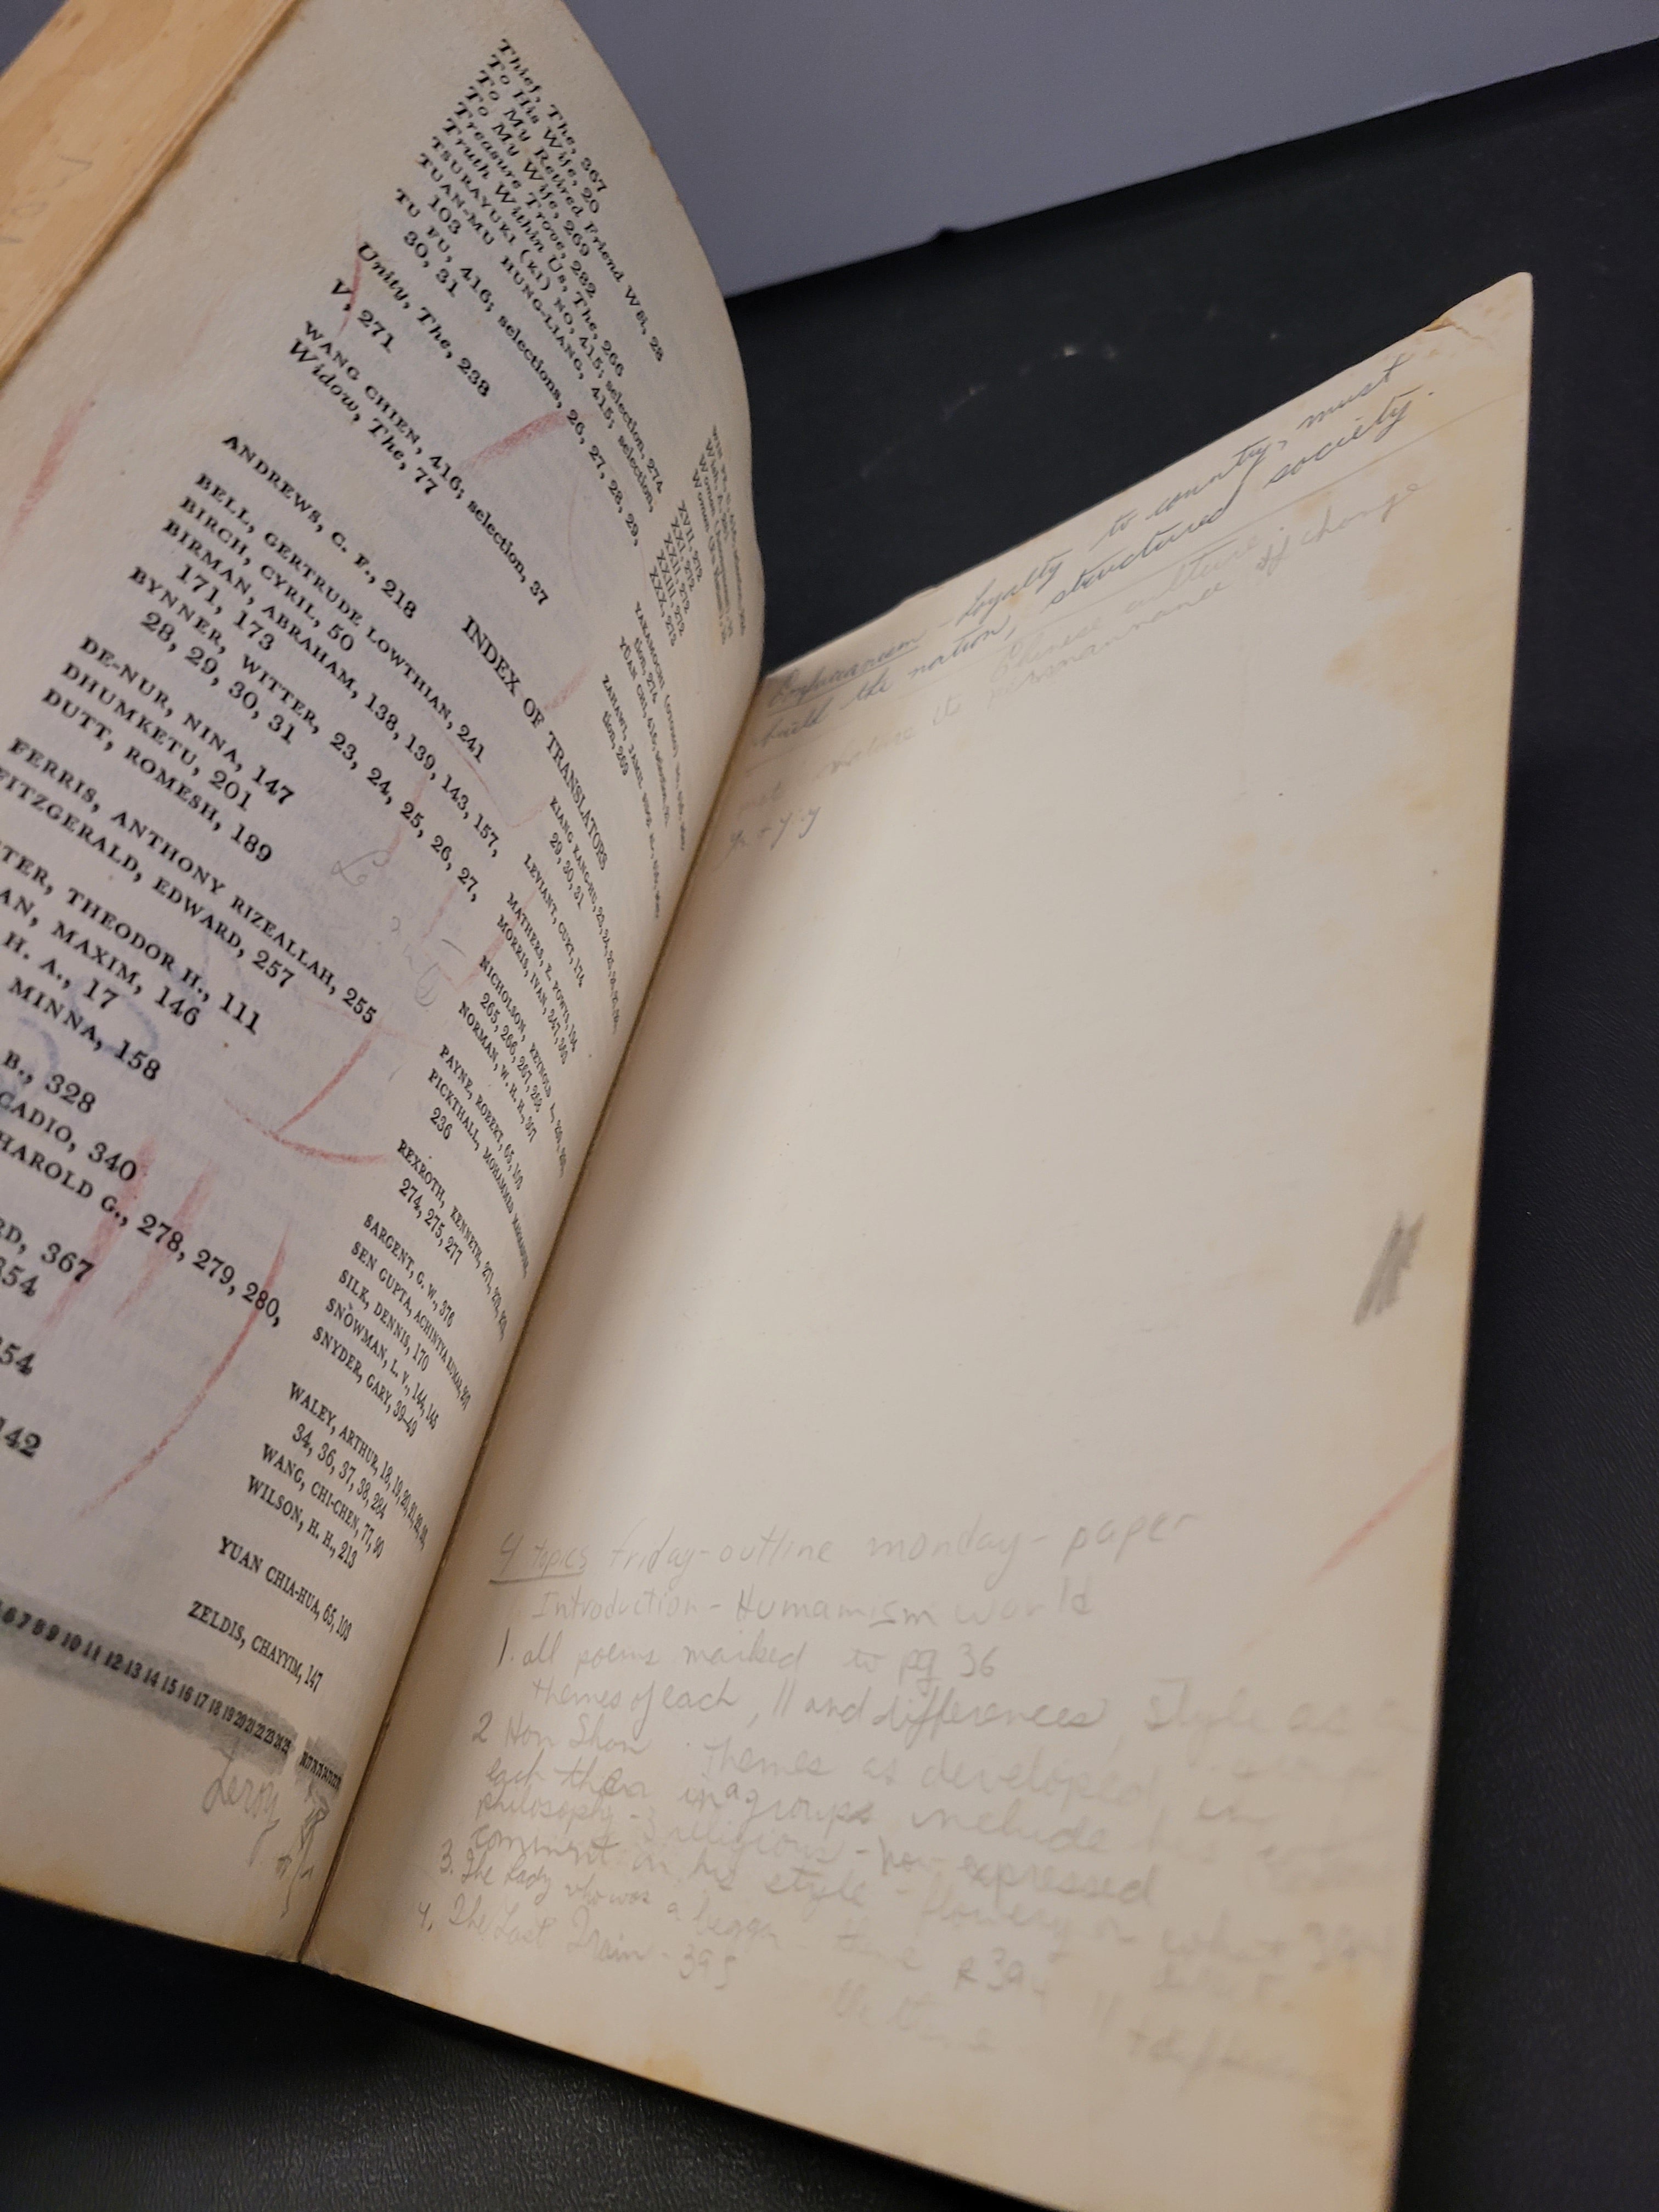 Thief, The, 367
To His Wife, 20
To My Retired Friend Wei, 28
To My Wife, 269
Treasure Trove, 282
Truth Within Us, The, 266
TSURAYUKI (KI) NO, 415; selection, 274
TUAN-MU HUNG-LIANG, 415; selection,
103
TU FU, 416; selections, 26, 27, 28, 29,
30, 31
Unity, The, 238
V, 271
WANG CHIEN, 416; selection, 37
Widow, The, 77
XVII, 272
XXI, 272
XXII, 272
XXIII, 272
XXX, 273
YAKAMOCHI
tion, 274
YUAN CHI, 416;
ZAHAWI, JAMIL
tion, 269
INDEX OF TRANSLATORS
ANDREWS, C. F., 218
BELL, GERTRUDE LOWTHIAN, 241
BIRCH, CYRIL, 50
BIRMAN, ABRAHAM, 138, 139, 143, 157,
171, 173
BYNNER, WITTER, 23, 24, 25, 26, 27,
28, 29, 30, 31
DE-NUR, NINA, 147
DHUMKETU, 201
DUTT, ROMESH, 189
FERRIS, ANTHONY RIZEALLAH, 255
FITZGERALD, EDWARD, 257
TER, THEODOR H., 111
AN, MAXIM, 146
H. A., 17
MINNA, 158
B., 328
CADIO, 340
HAROLD G., 278, 279, 280,
RD, 367
354
354
142
KIANG KANG-HU, 23, 24, 25, 26, 27, 28,
29, 30, 31
LEVIANT, CURT, 174
MATHERS, E. POWYS, 194
MORRIS, IVAN, 347, 360
NICHOLSON, REYNOLD A.,
265, 266, 267, 268
NORMAN, W. H. H., 307
PAYNE, ROBERT, 65, 103
PICKTHALL, MOHAMMED MARMADUKE,
236
REXROTH, KENNETH, 271, 272, 273,
274, 275, 277
SARGENT, G. W., 376
SEN GUPTA, ACHINTYA KUMAR, 207
SILK, DENNIS, 170
SNOWMAN, L. V., 144, 145
SNYDER, GARY, 39-49
WALEY, ARTHUR, 18, 19, 20, 21, 22, 33,
34, 36, 37, 38, 284
WANG, CHI-CHEN, 77, 90
WILSON, H. H., 213
YUAN CHIA-HUA, 65, 103
ZELDIS, CHAYYIM, 147
6 7 8 9 10 11 12 13 14 15 16 17 18 19 20 21 22 23 24 25
Leroy
Confucianism - Loyalty to country, must
build the nation, structured society.
Chinese culture
not in permanance of change
4 topics friday-outline monday-paper
Introduction - Humanism world
1. all poems marked to pg 36
themes of each, || and differences, style as
2 Han Shan themes as developed in
each then in a groups include his
philosophy - 3 religions - how expressed
comment on his style - flowery or what
3. The Lady who was a beggar - theme
4. The Last Train - 395